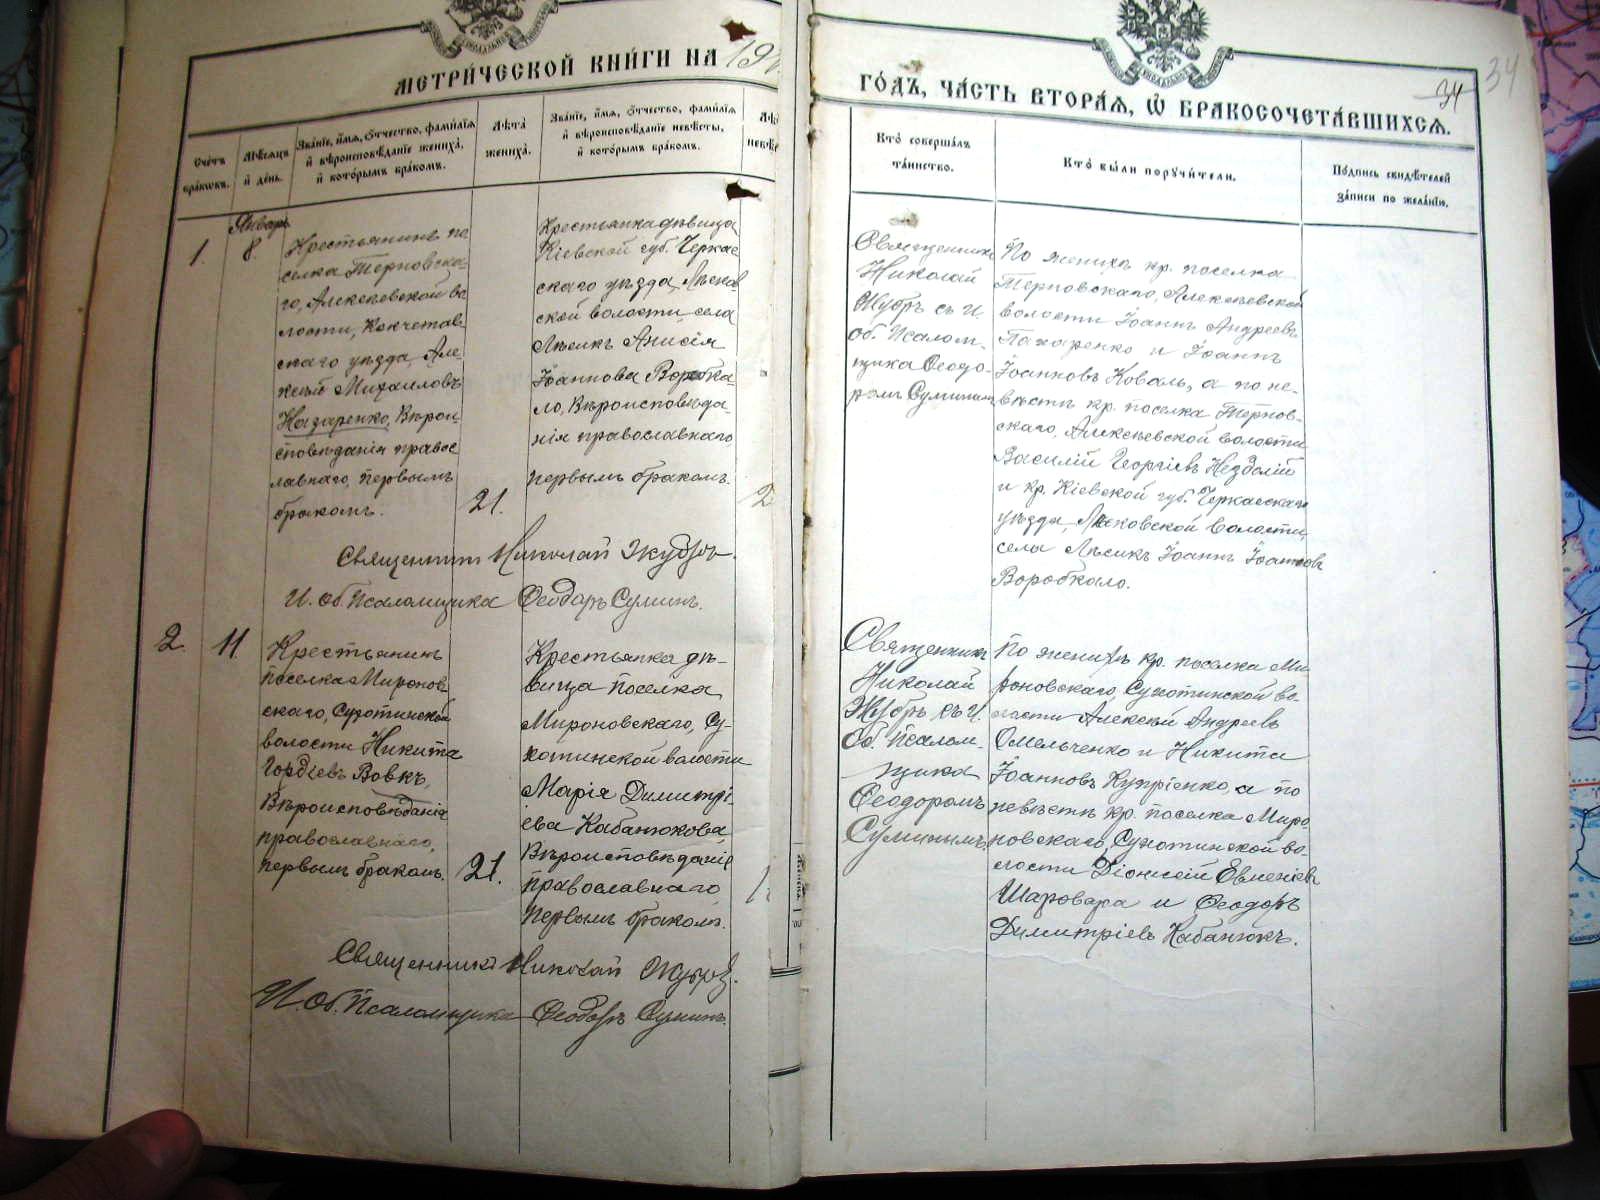 МЕТРИ́ЧЕСКОЙ КНИ́ГИ НА 19
ГО́ДЪ, ЧА́СТЬ ВТОРА́Я, Ѡ БРАКОСОЧЕТА́ВШИХСЯ.
34
34
Сче́тъ
бра́ковъ.
Мѣ́сяцъ
и де́нь.
Зва́нїе, и́мя, о́тчество, фами́лїя
и вѣроисповѣ́данїе жениха́,
и кото́рымъ бра́комъ.
Лѣта̀
жениха̀.
Зва́нїе, и́мя, о́тчество, фами́лїя
и вѣроисповѣ́данїе невѣ́сты,
и кото́рымъ бра́комъ.
Кто̀ соверша́лъ
та́инство.
Кто̀ бы́ли поручи́тели.
По́дпись свидѣ́телей
за́писи по жела́нїю.
Январь
1.
8.
Крестьянинъ по
селка Терновска-
го, Алексѣевской во
лости, Кокчетав
скаго уѣзда, Але-
ксѣй Михаиловъ
Назаренко, Вѣрои
сповѣданія правос
лавнаго, первымъ
бракомъ.
21.
Крестьянка дѣвица
Кіевской губ. Черкас
скаго уѣзда,
ской волости села
Анисія
Іоаннова Воробка-
ло, Вѣроисповѣда
нія православнаго,
первымъ бракомъ.
2
Священникъ
Николай
Жубръ съ И.
об. Псалом-
щика Ѳеодо-
ромъ Суминымъ
По женихѣ кр. поселка
Терновскаго, Алексѣевской
волости Іоаннъ Андреевъ
Пахаренко и Іоаннъ
Іоанновъ Коваль, а по не-
вѣстѣ кр. поселка Тернов-
скаго, Алексѣевской волости
Василій Георгіевъ Нездолій
и кр. Кіевской губ. Черкасскаго
уѣзда, волости,
села Іоаннъ Іоанновъ
Воробкало.
Священникъ Николай Жубръ.
И. об. Псаломщика Ѳеодоръ Суминъ.
2.
11.
Крестьянинъ
поселка Миронов
скаго, Сухотинской
волости Никита
Гордіевъ Вовкъ,
Вѣроисповѣданія
православнаго,
первымъ бракомъ.
21.
Крестьянка дѣ-
вица поселка
Мироновскаго, Су-
хотинской волости
Марія Димитрі-
ева Кабанюкова,
Вѣроисповѣданія
православнаго
первымъ бракомъ.
1
Священникъ
Николай
Жубръ съ И.
Об. Псалом-
щика
Ѳеодоромъ
Суминымъ
По женихѣ кр. поселка Ми-
роновскаго, Сухотинской во-
лости Алексѣй Андреевъ
Омельченко и Никита
Іоанновъ Купріенко, а по
невѣстѣ кр. поселка Миро-
новскаго, Сухотинской во-
лости Діонисій Евменіевъ
Шаровара и Ѳеодоръ
Димитріевъ Кабанюкъ.
Священникъ Николай Жубръ.
И. Об. Псаломщика Ѳеодоръ Суминъ.